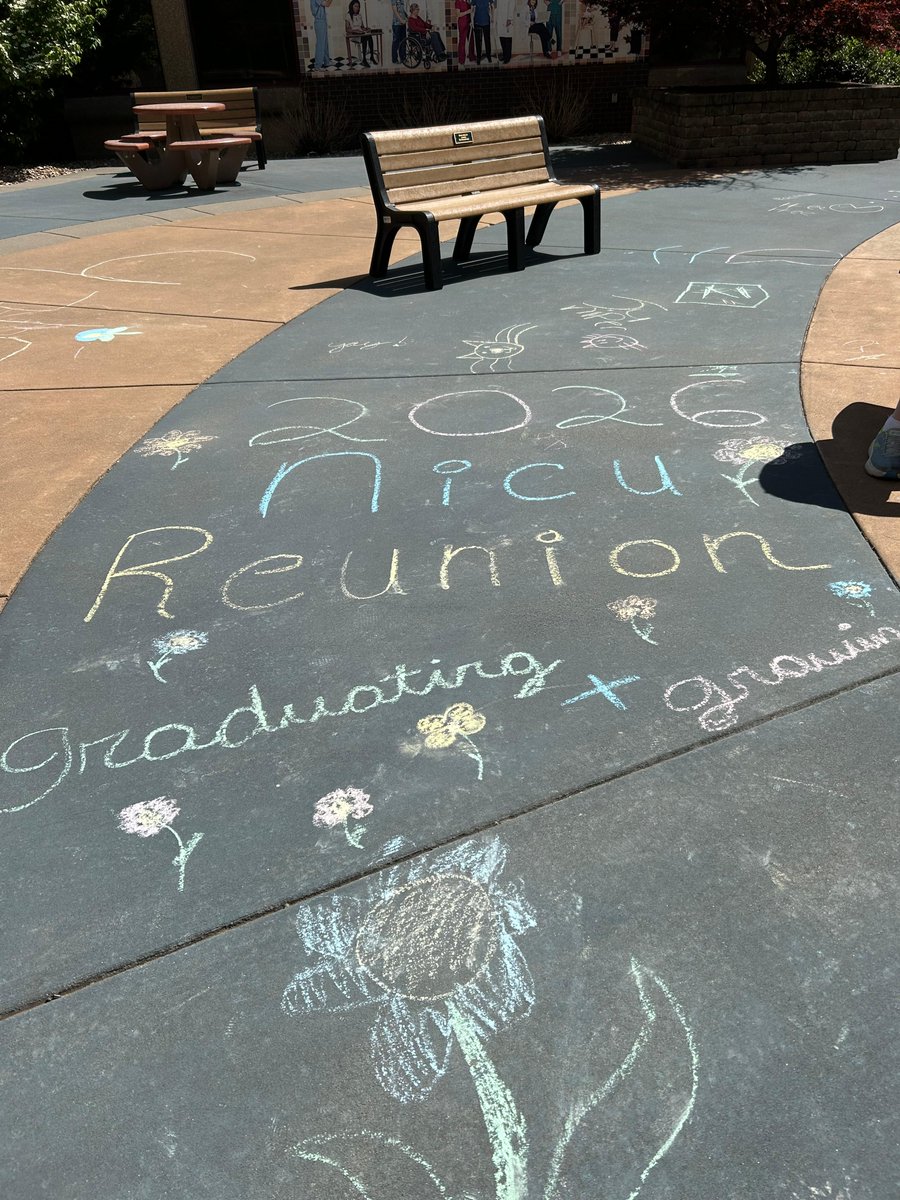 2026
Nicu
Reunion
graduating + growin